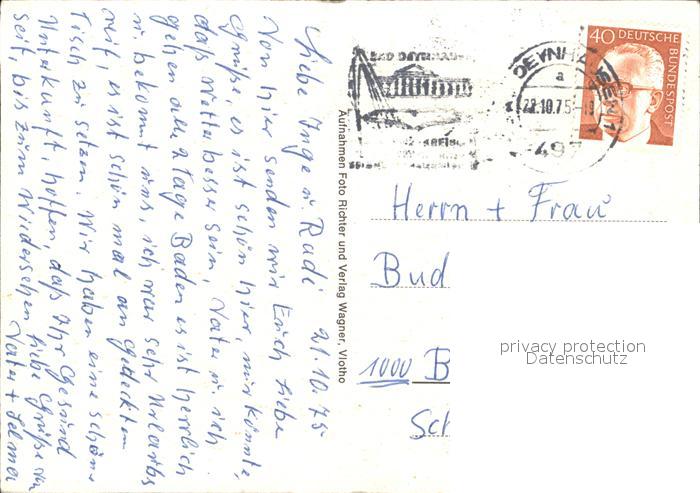 Liebe Inge u Rudi 21.10.75
Von hier senden wir Euch liebe
Grüße, es ist schön hier, nur könnte
daß Wetter besser sein, Vater u. ich
gehen alle 2 Tage Baden es ist herrlich
u. bekommt uns, ich war sehr Urlaubs
reif, es ist schön mal an gedeckten
Tisch zu setzen. Wir haben eine schöne
Unterkunft, hoffen, daß Ihr Gesund
seit, bis zum Wiedersehen liebe Grüße von
Vater + Selma
Aufnahmen Foto Richter und Verlag Wagner, Vlotho
BAD OEYNHAUSEN
OEYNHAUSEN 1
a
22.10.75
497
40 DEUTSCHE
BUNDESPOST
Herrn + Frau
Bud
1000 B
Sch
privacy protection
Datenschutz